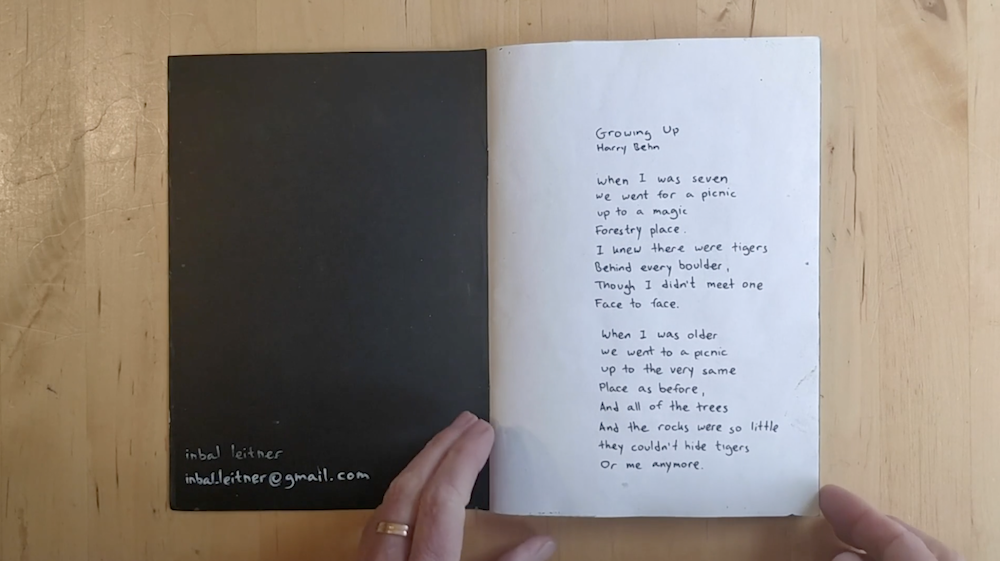 inbal leitner
inbal_leitner@gmail.com
Growing Up
Harry Behn
When I was seven
we went for a picnic
up to a magic
Forestry place.
I knew there were tigers
Behind every boulder,
Though I didn't meet one
Face to face.
When I was older
we went to a picnic
up to the very same
Place as before,
And all of the trees
And the rocks were so little
they couldn't hide tigers
Or me anymore.